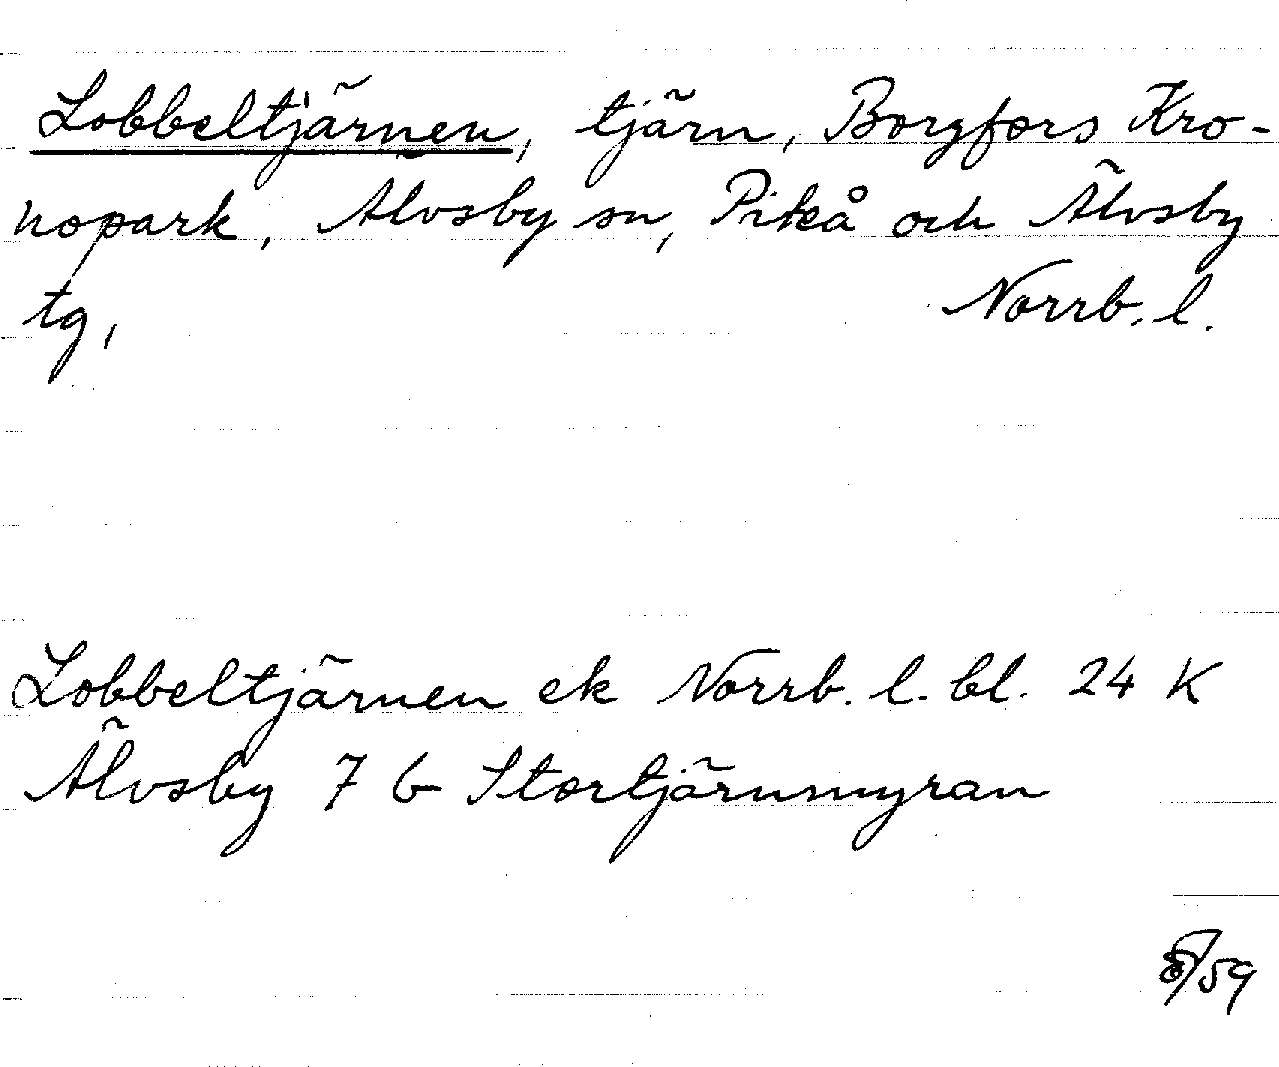 Lobbeltjärnen, tjärn, Borgfors Kro-
nopark, Älvsby sn, Piteå och Älvsby
tg,
Norrb. l.
Lobbeltjärnen ek Norrb. l. bl. 24 K
Älvsby 7 b Stortjärnmyran
/59